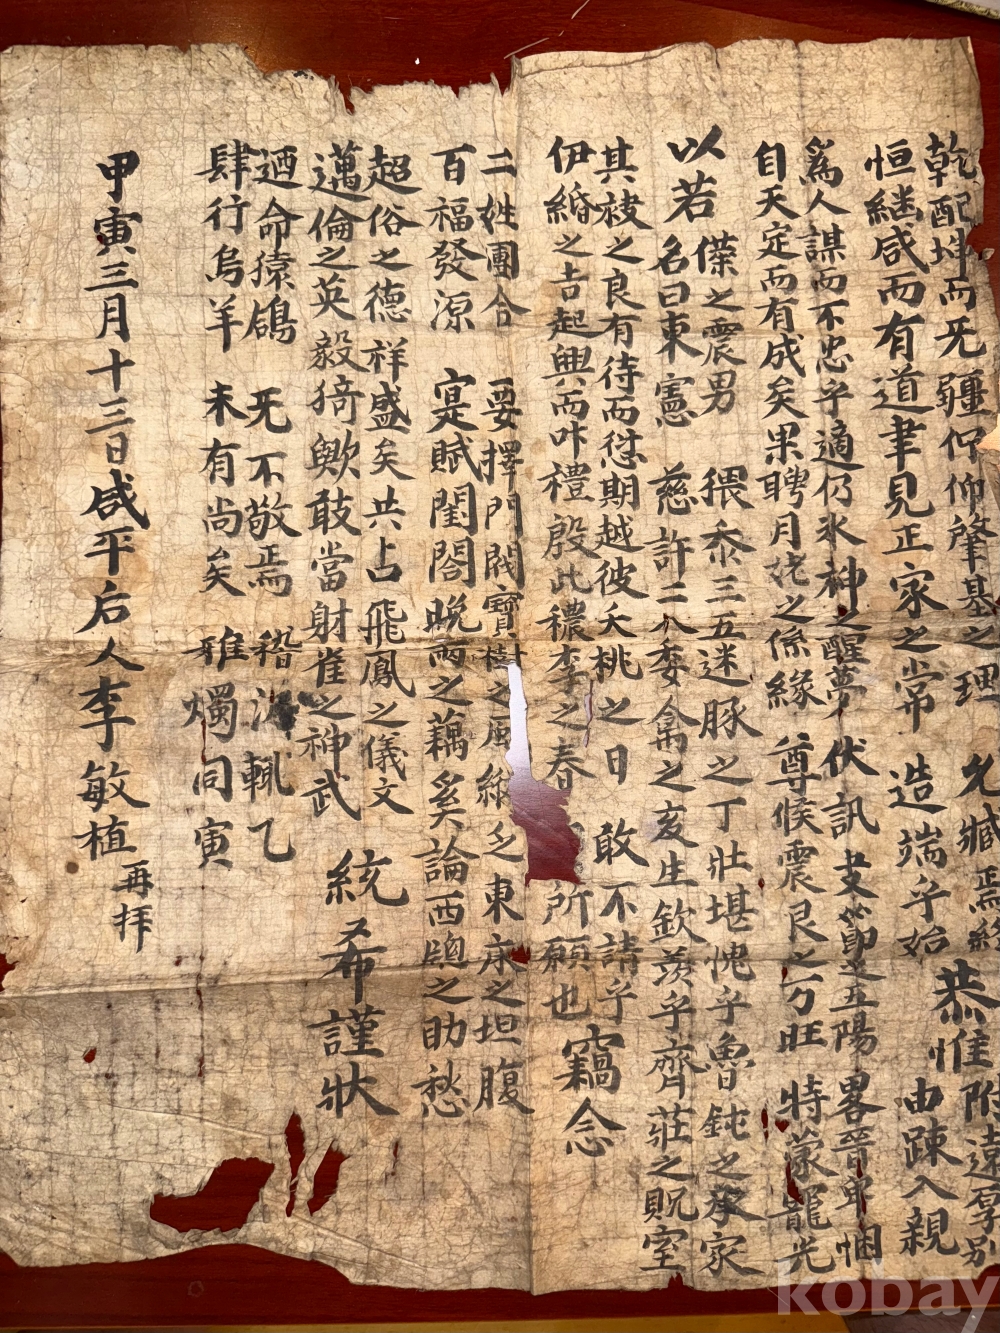 乾配坤而无疆仰肇基之理 允臧焉終 恭惟附遠厚別
恒継咸而有道聿見正家之常 造端乎始 由踈入親
爲人謀而不忠乎適仍氷神之醒夢 伏訊 之五陽 畧晉 悃
自天定而有成矣果聘月姥之係緣 尊候震艮之万旺 特蒙寵光
以若
僕之震男 猥忝三五迷豚之丁壯堪愧乎魯鈍之承家
名曰東憲 慈許二八委禽之亥生欽羨乎齊莊之貺室
其祓之良有待而愆期越彼夭桃之日 敢不請乎
伊緍之吉起興而叶禮殷此穠李之春 所願也 竊念
二姓團合 要擇門閥寶樹之風 乏東床之坦腹
百福發源 寔賦閨閤晩雨之藕奚論西 之助愁
超俗之德祥盛矣共占飛鳳之儀文
邁倫之英毅猗歟敢當射雀之神武 統希謹狀
迺命 鴿 无不敬焉 輒乙
肆行烏羊 未有尚矣 雅燭同寅
甲寅三月十三日咸平后人李敏植 再拜
kobay